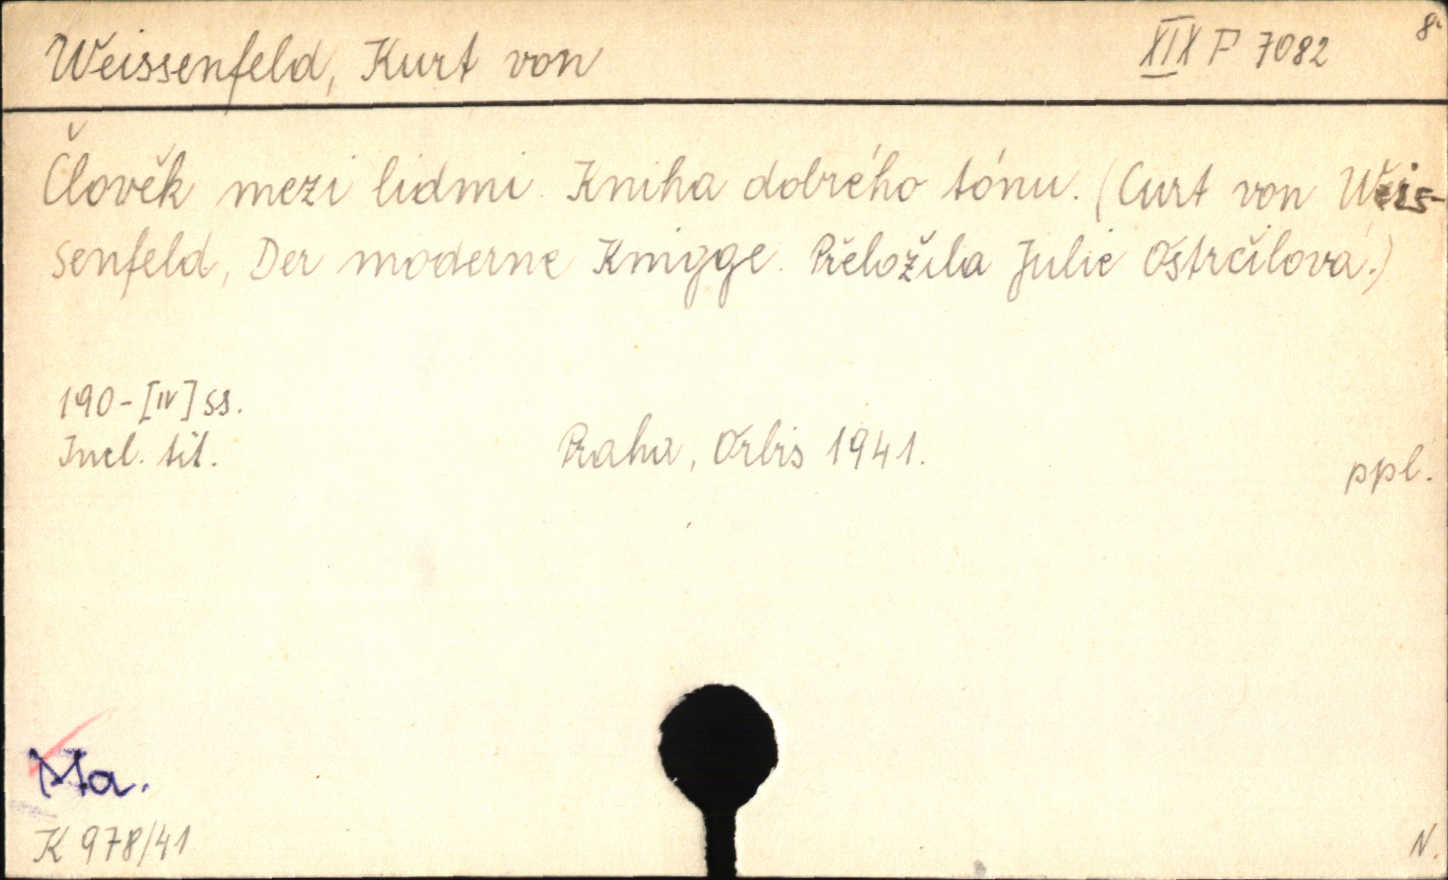 Weissenfeld, Kurt von XIX F 7082 8°
Člověk mezi lidmi. Kniha dobrého tónu. (Curt von Weis-
senfeld, Der moderne Knigge. Přeložila Julie Ostrčilová.)
190-[IV] ss.
Incl. tit.
Praha, Orbis 1941.
ppl.
Ma.
K 978/41
N.